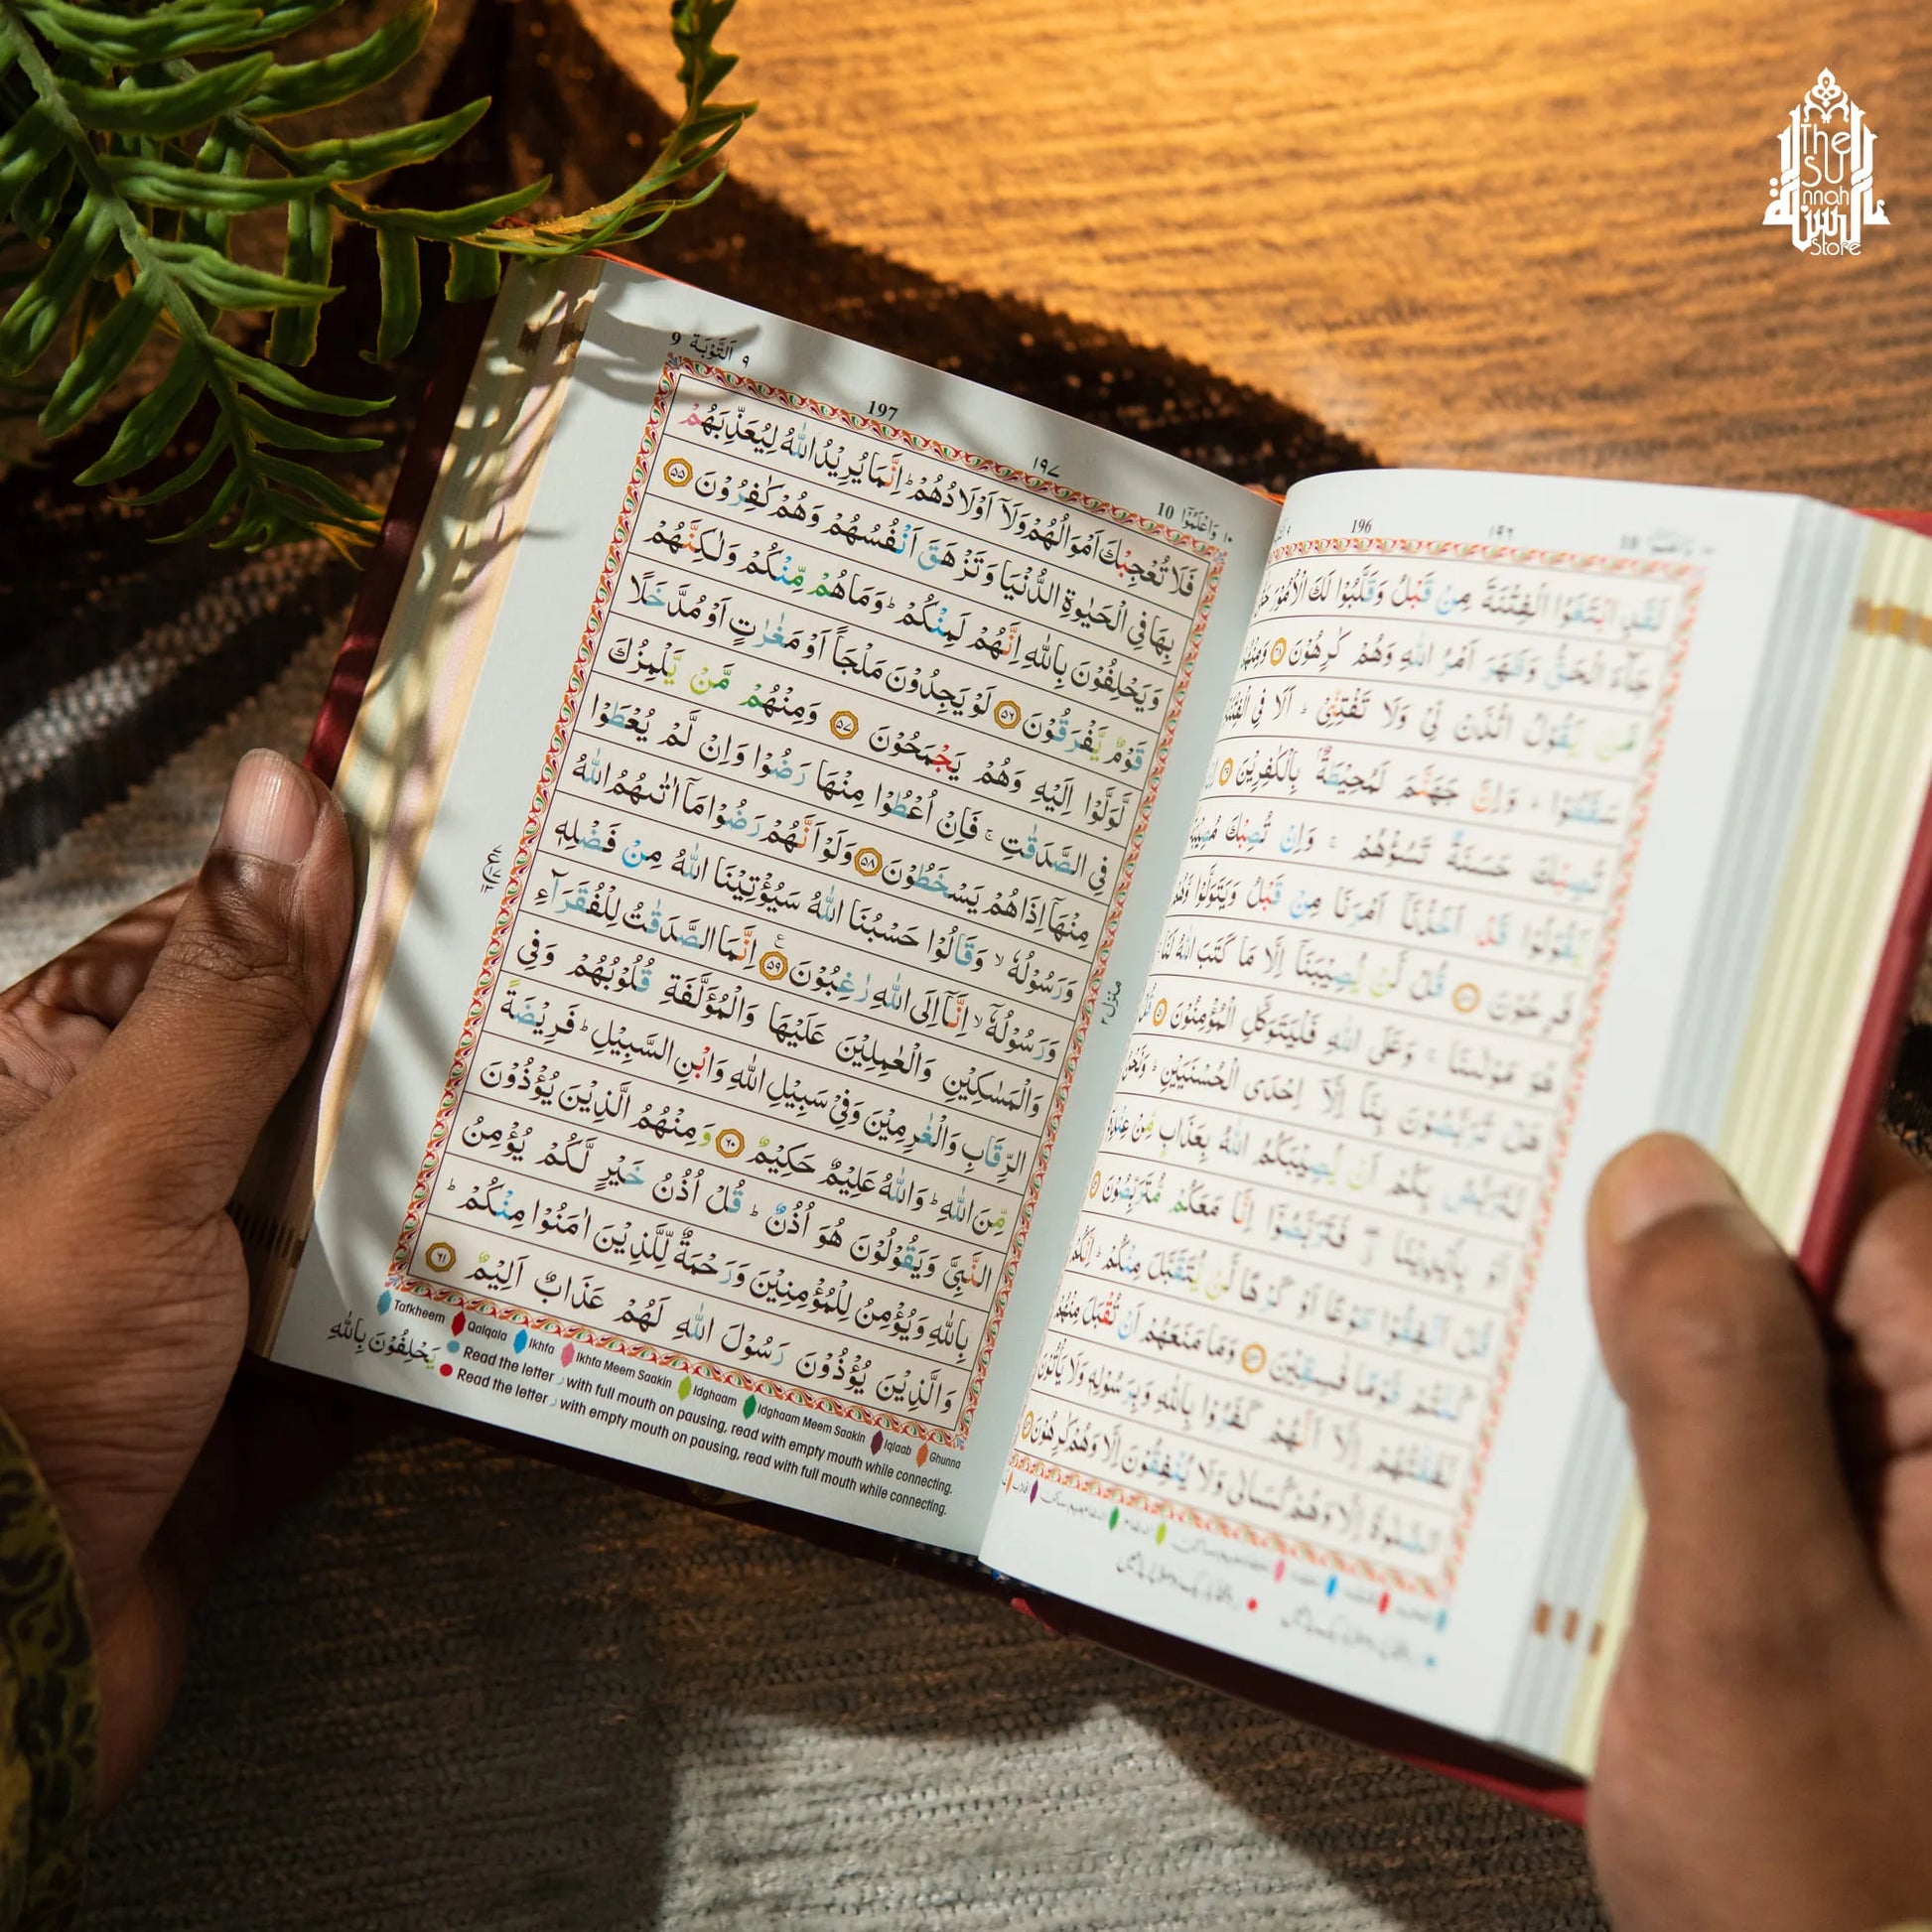 The
SU
nnah
السنة
Store
196
١٩٦
لَقَدِ ابْتَغَوُا الْفِتْنَةَ مِنْ قَبْلُ وَقَلَّبُوْا لَكَ الْاُمُوْرَ
جَآءَ الْحَقُّ وَظَهَرَ اَمْرُ اللّٰهِ وَهُمْ كٰرِهُوْنَ
يَقُوْلُ ائْذَنْ لِّيْ وَلَا تَفْتِنِّيْ ؕ اَلَا فِي
سَقَطُوْا ؕ وَاِنَّ جَهَنَّمَ لَمُحِيْطَةٌۢ بِالْكٰفِرِيْنَ
تُصِبْكَ حَسَنَةٌ تَسُؤْهُمْ ۚ وَاِنْ تُصِبْكَ
يَّقُوْلُوْا قَدْ اَخَذْنَاۤ اَمْرَنَا مِنْ قَبْلُ وَيَتَوَلَّوْا
فَرِحُوْنَ قُلْ لَّنْ يُّصِيْبَنَاۤ اِلَّا مَا كَتَبَ اللّٰهُ لَنَا
هُوَ مَوْلٰىنَا ۚ وَعَلَى اللّٰهِ فَلْيَتَوَكَّلِ الْمُؤْمِنُوْنَ
هَلْ تَرَبَّصُوْنَ بِنَاۤ اِلَّاۤ اِحْدَى الْحُسْنَيَيْنِ ؕ وَنَحْنُ
نَتَرَبَّصُ بِكُمْ اَنْ يُّصِيْبَكُمُ اللّٰهُ بِعَذَابٍ مِّنْ
اَوْ بِاَيْدِيْنَا ۖ فَتَرَبَّصُوْۤا اِنَّا مَعَكُمْ مُّتَرَبِّصُوْنَ
قُلْ اَنْفِقُوْا طَوْعًا اَوْ كَرْهًا لَّنْ يُّتَقَبَّلَ مِنْكُمْ ؕ اِنَّكُمْ
كُنْتُمْ قَوْمًا فٰسِقِيْنَ وَمَا مَنَعَهُمْ اَنْ تُقْبَلَ مِنْهُمْ
نَفَقٰتُهُمْ اِلَّاۤ اَنَّهُمْ كَفَرُوْا بِاللّٰهِ وَبِرَسُوْلِهٖ وَلَا يَاْتُوْنَ
الصَّلٰوةَ اِلَّا وَهُمْ كُسَالٰى وَلَا يُنْفِقُوْنَ اِلَّا وَهُمْ كٰرِهُوْنَ
9 اَلتَّوْبَة ٩
197
١٩٧
10 وَاعْلَمُوْۤا ١٠
فَلَا تُعْجِبْكَ اَمْوَالُهُمْ وَلَاۤ اَوْلَادُهُمْ ؕ اِنَّمَا يُرِيْدُ اللّٰهُ لِيُعَذِّبَهُمْ
بِهَا فِي الْحَيٰوةِ الدُّنْيَا وَتَزْهَقَ اَنْفُسُهُمْ وَهُمْ كٰفِرُوْنَ ٥٥
وَيَحْلِفُوْنَ بِاللّٰهِ اِنَّهُمْ لَمِنْكُمْ ؕ وَمَا هُمْ مِّنْكُمْ وَلٰكِنَّهُمْ
قَوْمٌ يَّفْرَقُوْنَ ٥٦ لَوْ يَجِدُوْنَ مَلْجَاً اَوْ مَغٰرٰتٍ اَوْ مُدَّخَلًا
لَّوَلَّوْا اِلَيْهِ وَهُمْ يَجْمَحُوْنَ ٥٧ وَمِنْهُمْ مَّنْ يَّلْمِزُكَ
فِي الصَّدَقٰتِ ۚ فَاِنْ اُعْطُوْا مِنْهَا رَضُوْا وَاِنْ لَّمْ يُعْطَوْا
مِنْهَاۤ اِذَا هُمْ يَسْخَطُوْنَ ٥٨ وَلَوْ اَنَّهُمْ رَضُوْا مَاۤ اٰتٰىهُمُ اللّٰهُ
وَرَسُوْلُهٗ ۙ وَقَالُوْا حَسْبُنَا اللّٰهُ سَيُؤْتِيْنَا اللّٰهُ مِنْ فَضْلِهٖ
وَرَسُوْلُهٗۤ ۙ اِنَّاۤ اِلَى اللّٰهِ رٰغِبُوْنَ ٥٩ اِنَّمَا الصَّدَقٰتُ لِلْفُقَرَآءِ
وَالْمَسٰكِيْنِ وَالْعٰمِلِيْنَ عَلَيْهَا وَالْمُؤَلَّفَةِ قُلُوْبُهُمْ وَفِي
الرِّقَابِ وَالْغٰرِمِيْنَ وَفِيْ سَبِيْلِ اللّٰهِ وَابْنِ السَّبِيْلِ ؕ فَرِيْضَةً
مِّنَ اللّٰهِ ؕ وَاللّٰهُ عَلِيْمٌ حَكِيْمٌ ٦٠ وَمِنْهُمُ الَّذِيْنَ يُؤْذُوْنَ
النَّبِيَّ وَيَقُوْلُوْنَ هُوَ اُذُنٌ ؕ قُلْ اُذُنُ خَيْرٍ لَّكُمْ يُؤْمِنُ
بِاللّٰهِ وَيُؤْمِنُ لِلْمُؤْمِنِيْنَ وَرَحْمَةٌ لِّلَّذِيْنَ اٰمَنُوْا مِنْكُمْ ؕ
وَالَّذِيْنَ يُؤْذُوْنَ رَسُوْلَ اللّٰهِ لَهُمْ عَذَابٌ اَلِيْمٌ ٦١
منزل ٢
Tafkheem Qalqala Ikhfa Ikhfa Meem Saakin Idghaam Idghaam Meem Saakin Iqlaab Ghunna
Read the letter ر with full mouth on pausing, read with empty mouth while connecting.
Read the letter ر with empty mouth on pausing, read with full mouth while connecting.
يَحْلِفُوْنَ بِاللّٰهِ